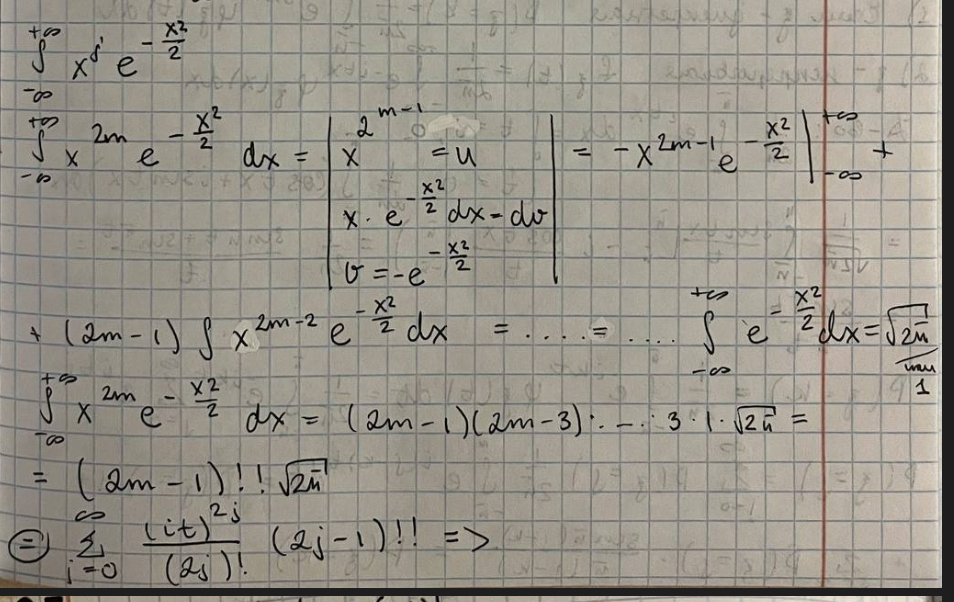 ∫_{-∞}^{+∞} x^j e^{-x²/2}
∫_{-∞}^{+∞} x^{2m} e^{-x²/2} dx = | x^{2m-1} = u | = -x^{2m-1} e^{-x²/2} |_{-∞}^{+∞} +
x · e^{-x²/2} dx = dv
v = -e^{-x²/2}
+ (2m-1) ∫ x^{2m-2} e^{-x²/2} dx = ..... = .... ∫_{-∞}^{+∞} e^{-x²/2} dx = √2π
или
1
∫_{-∞}^{+∞} x^{2m} e^{-x²/2} dx = (2m-1)(2m-3)·...·3·1·√2π =
= (2m-1)!! √2π
= ∑_{j=0}^{∞} (it)^{2j}/(2j)! (2j-1)!! =>